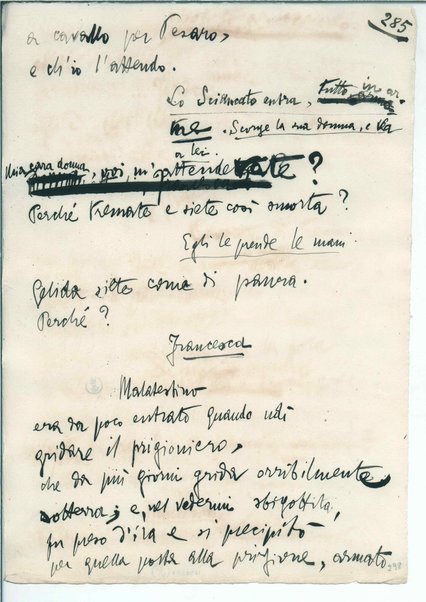 285
a cavallo per Pesaro,
e ch'io l'attendo.
Lo Sciancato entra, tutto in ar-
me. Scorge la sua donna, e va
a lei.
Mia cara donna, voi m'attendevate?
Perché tremate e siete così smorta?
Egli le prende le mani.
Gelida siete come di paura.
Perché?
Francesca
Malatestino
era da poco entrato quando udì
gridare il prigioniero,
che da più giorni grida orribilmente
sotterra; e, nel vedermi sbigottita,
fu preso d'ira e si precipitò
per quella porta alla prigione, armato
298